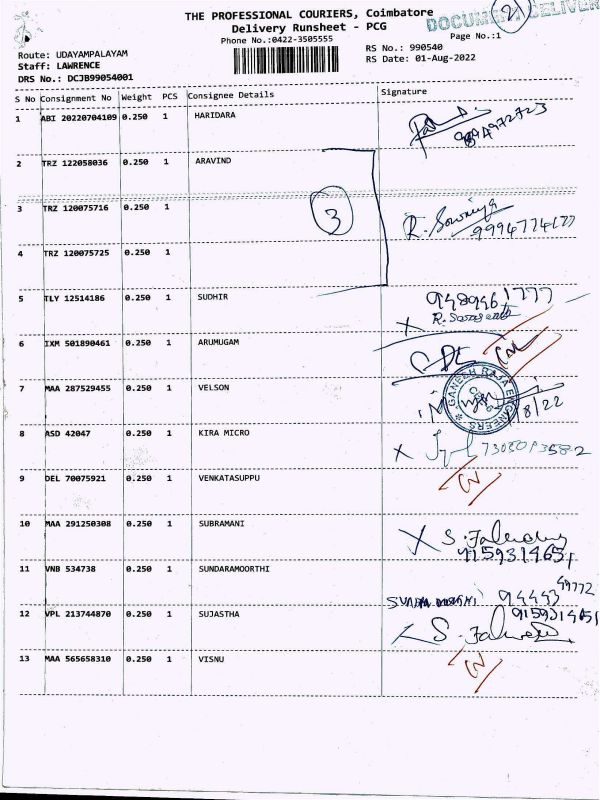 THE PROFESSIONAL COURIERS, Coimbatore
Delivery Runsheet - PCG
Phone No.:0422-3505555
DOCUMENT DELIVER
2
Page No.:1
Route: UDAYAMPALAYAM
Staff: LAWRENCE
DRS No.: DCJB99054001
RS No.: 990540
RS Date: 01-Aug-2022
S No Consignment No Weight PCS Consignee Details Signature
1 ABI 20220704109 0.250 1 HARIDARA
2 TRZ 122058036 0.250 1 ARAVIND
3 TRZ 120075716 0.250 1
3
R. Sowmiya
9994774177
4 TRZ 120075725 0.250 1
5 TLY 12514186 0.250 1 SUDHIR
9489461777
6 IXM 501890461 0.250 1 ARUMUGAM
7 MAA 287529455 0.250 1 VELSON
GANESH RAJA ENGINEERS
8/22
8 ASD 42047 0.250 1 KIRA MICRO
9 DEL 70075921 0.250 1 VENKATASUPPU
10 MAA 291250308 0.250 1 SUBRAMANI
9159314651
11 VNB 534738 0.250 1 SUNDARAMOORTHI
94443 49772
12 VPL 213744870 0.250 1 SUJASTHA
9159314651
13 MAA 565658310 0.250 1 VISNU